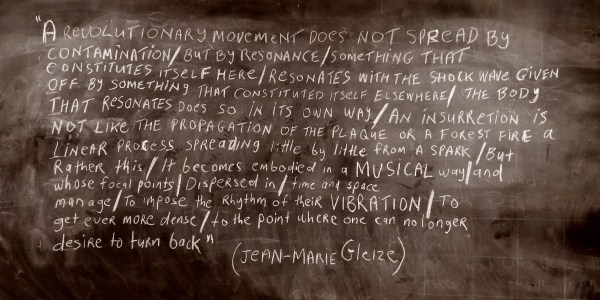 "A REVOLUTIONARY MOVEMENT DOES NOT SPREAD BY
CONTAMINATION/BUT BY RESONANCE/SOMETHING THAT
CONSTITUTES ITSELF HERE/RESONATES WITH THE SHOCK WAVE GIVEN
OFF BY SOMETHING THAT CONSTITUTED ITSELF ELSEWHERE/THE BODY
THAT RESONATES DOES SO IN ITS OWN WAY/AN INSURRETION IS
NOT LIKE THE PROPAGATION OF THE PLAQUE OR A FOREST FIRE a
LINEAR PROCESS SPREADING little by little FROM A SPARK/But
Rather this/It becomes embodied in a MUSICAL way/and
whose focal points/Dispersed in/time and space
manage/To impose the Rhythm of their VIBRATION/To
get ever more dense/to the point where one can no longer
desire to turn back"
(JEAN-MARIE Gleize)